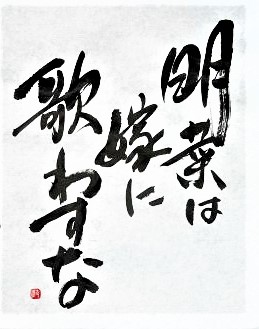 明菜は
嫁に
歌わすな